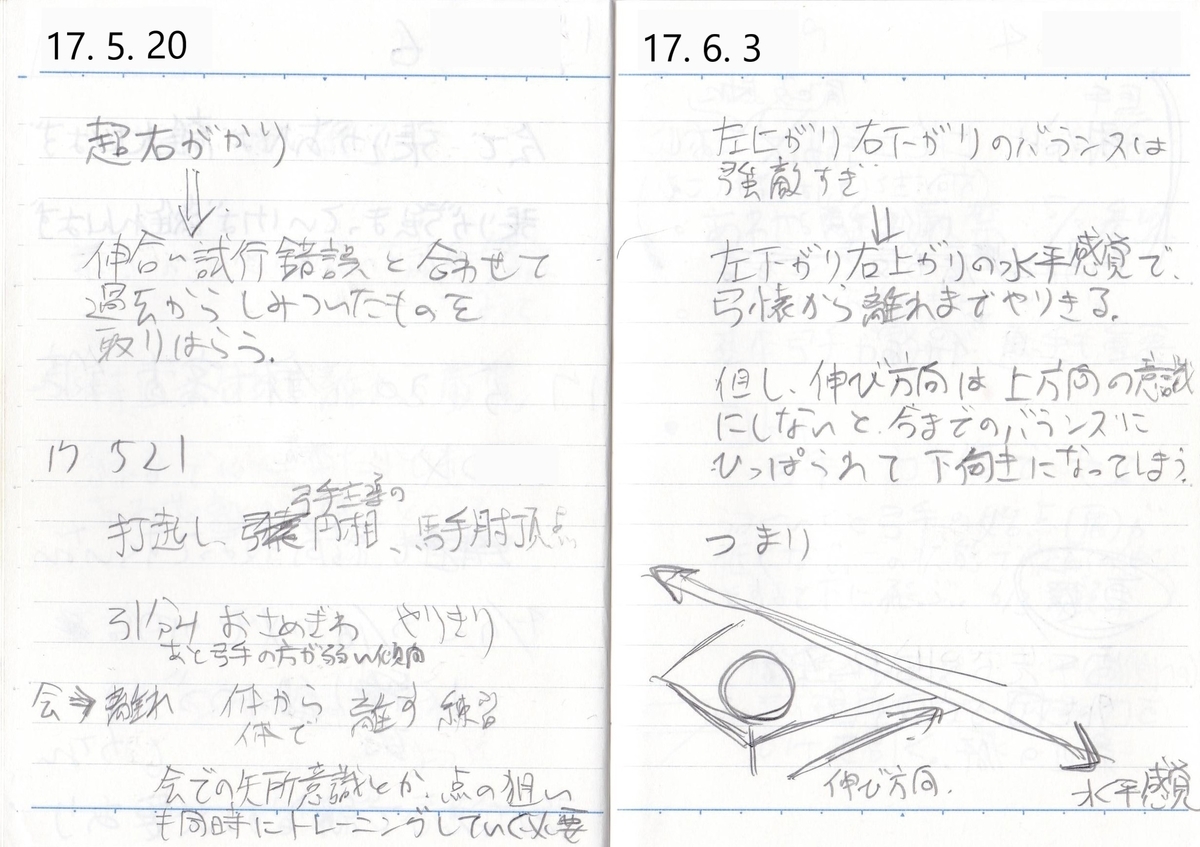 17. 5. 20
超右がかり
伸合い試行錯誤と合わせて
過去からしみついたものを
取りはらう。
17 5 21
弓手主導の
打起し、円相、馬手肘頂点
引分け おさめぎわ やりきり
あと弓手の方が弱い傾向
会→離れ 体から 離す 練習
体で
会での矢所意識とか、点の狙い
も同時にトレーニングしていく必要
17. 6. 3
左上がり右下がりのバランスは
強敵すぎ
左下がり右上がりの水平感覚で、
弓懐から離れまでやりきる。
但し、伸び方向は上方向の意識
にしないと、今までのバランスに
ひっぱられて下向きになってしまう。
つまり
伸び方向.
水平感覚